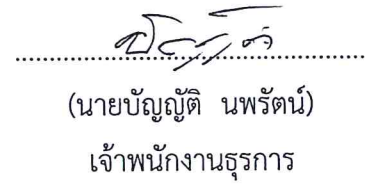 (นายบัญญัติ นพรัตน์)
เจ้าพนักงานธุรการ